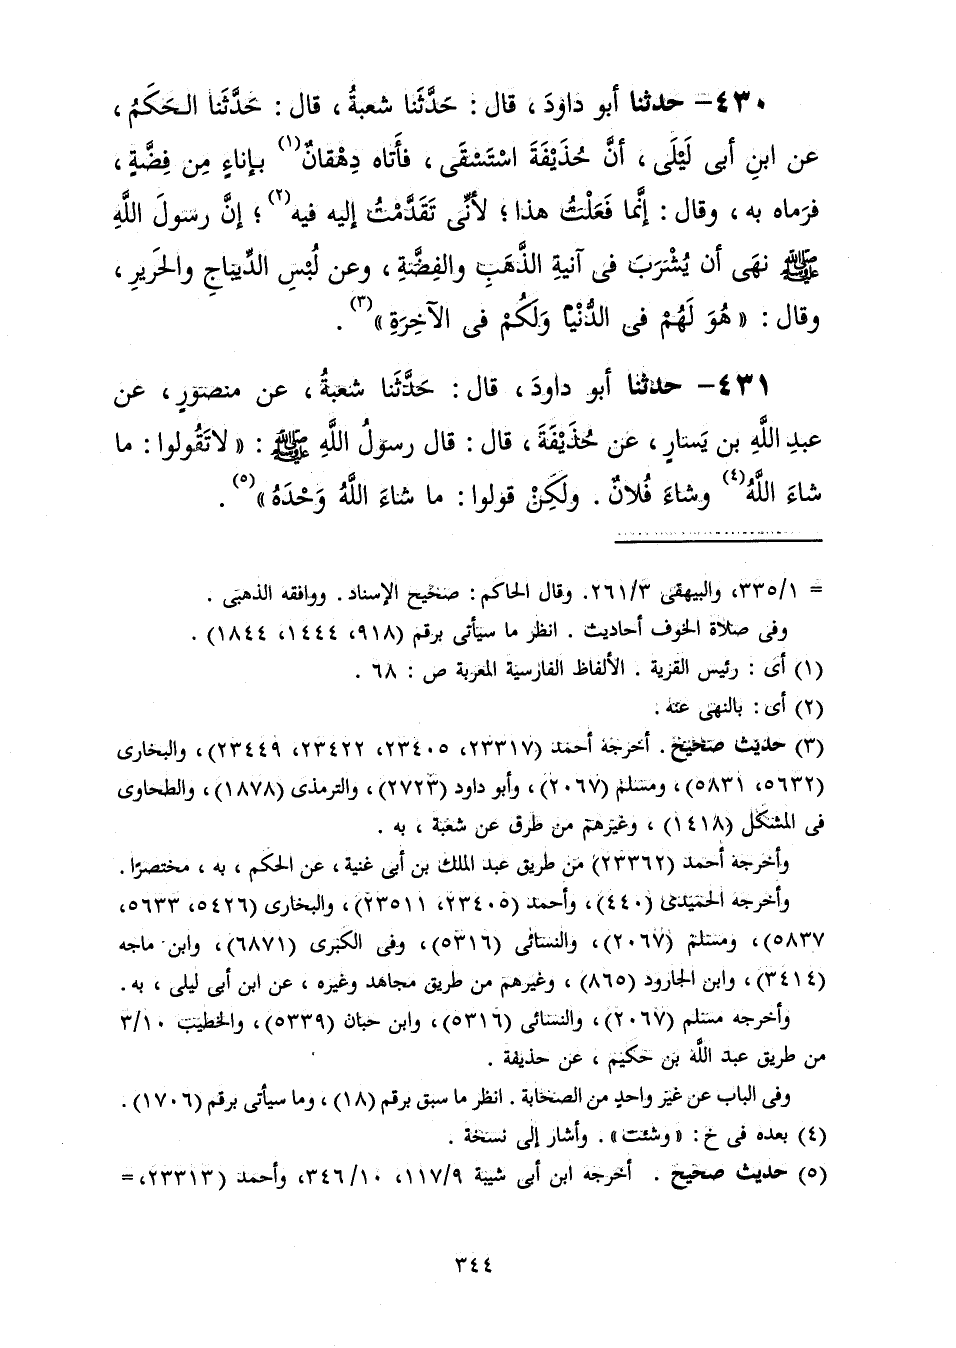 ٤٣٠- حدثنا أبو داودَ ، قال : حَدَّثَنا شعبةُ ، قال : حَدَّثَنا الحَكَمُ ،
عن ابنِ أبى لَيْلَى ، أنَّ حُذَيْفَةَ اسْتَسْقَى ، فأَتاه دِهْقانٌ(١) بإناءٍ مِن فِضَّةٍ ،
فرَماه به ، وقال : إنَّما فَعَلْتُ هذا ؛ لأنِّى تَقَدَّمْتُ إليه فيه(٢) ؛ إنَّ رسولَ اللَّهِ
ﷺ نهَى أن يُشْرَبَ فى آنيةِ الذَّهَبِ والفِضَّةِ ، وعن لُبْسِ الدِّيباجِ والحَريرِ ،
وقال : « هُوَ لَهُمْ فى الدُّنْيا وَلَكُمْ فى الآخِرَةِ »(٣) .
٤٣١- حدثنا أبو داودَ ، قال : حَدَّثَنا شعبةُ ، عن منصورٍ ، عن
عبدِ اللَّهِ بن يَسارٍ ، عن حُذَيْفَةَ ، قال : قال رسولُ اللَّهِ ﷺ : « لاتَقُولوا : ما
شاءَ اللَّهُ(٤) وشاءَ فُلانٌ . ولَكِنْ قولوا : ما شاءَ اللَّهُ وَحْدَهُ »(٥) .
= ٣٣٥/١، والبيهقى ٢٦١/٣. وقال الحاكم : صحيح الإسناد . ووافقه الذهبى .
وفى صلاة الخوف أحاديث . انظر ما سيأتى برقم (٩١٨، ١٤٤٤، ١٨٤٤) .
(١) أى : رئيس القرية . الألفاظ الفارسية المعربة ص : ٦٨ .
(٢) أى : بالنهى عنه .
(٣) حديث صحيح . أخرجه أحمد (٢٣٣١٧، ٢٣٤٠٥، ٢٣٤٢٢، ٢٣٤٤٩) ، والبخارى
(٥٦٣٢، ٥٨٣١) ، ومسلم (٢٠٦٧) ، وأبو داود (٢٧٢٣) ، والترمذى (١٨٧٨) ، والطحاوى
فى المشكل (١٤١٨) ، وغيرهم من طرق عن شعبة ، به .
وأخرجه أحمد (٢٣٣٦٢) من طريق عبد الملك بن أبى غنية ، عن الحكم ، به ، مختصرًا .
وأخرجه الحميدى (٤٤٠) ، وأحمد (٢٣٤٠٥، ٢٣٥١١) ، والبخارى (٥٤٢٦، ٥٦٣٣،
٥٨٣٧) ، ومسلم (٢٠٦٧) ، والنسائى (٥٣١٦) ، وفى الكبرى (٦٨٧١) ، وابن ماجه
(٣٤١٤) ، وابن الجارود (٨٦٥) ، وغيرهم من طريق مجاهد وغيره ، عن ابن أبى ليلى ، به .
وأخرجه مسلم (٢٠٦٧) ، والنسائى (٥٣١٦) ، وابن حبان (٥٣٣٩) ، والخطيب ٣/١٠
من طريق عبد اللَّه بن حكيم ، عن حذيفة .
وفى الباب عن غير واحدٍ من الصحابة . انظر ما سبق برقم (١٨) ، وما سيأتى برقم (١٧٠٦) .
(٤) بعده فى خ : « وشئت » . وأشار إلى نسخة .
(٥) حديث صحيح . أخرجه ابن أبى شيبة ١١٧/٩، ٣٤٦/١٠، وأحمد (٢٣٣١٣، =
٣٤٤